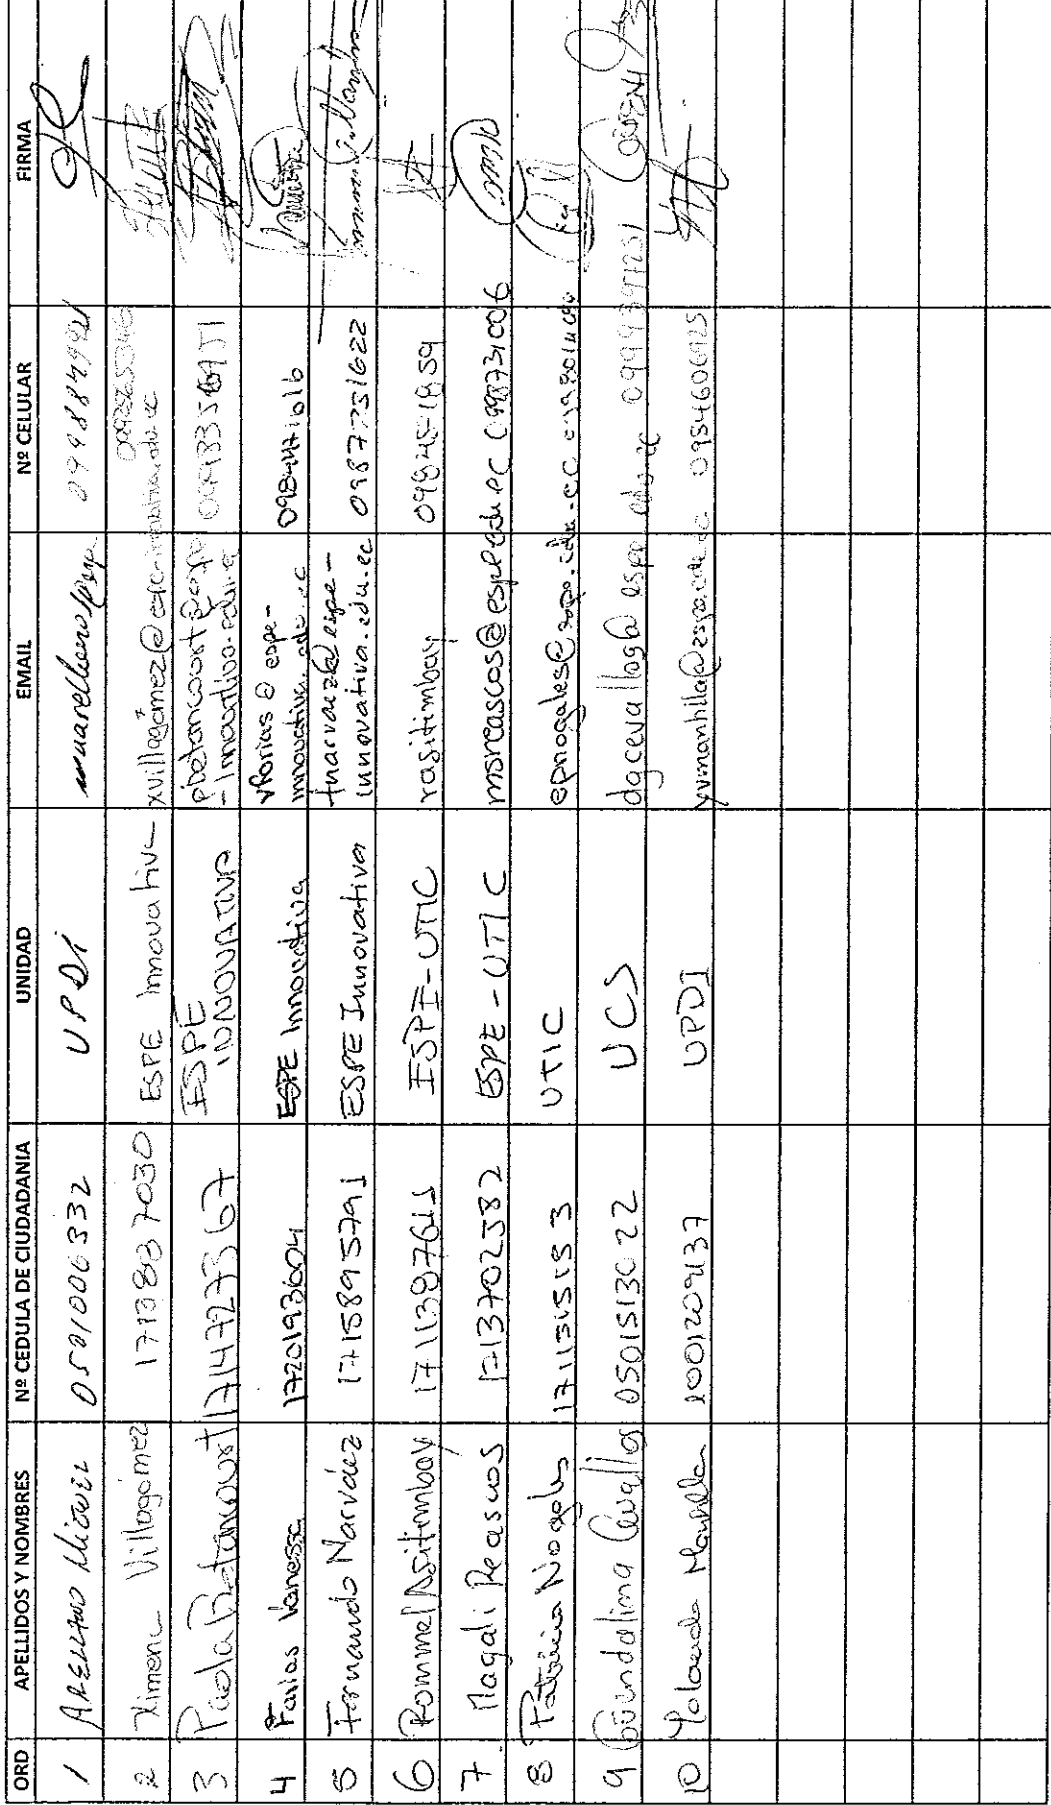 ORD APELLIDOS Y NOMBRES Nº CEDULA DE CIUDADANIA UNIDAD EMAIL Nº CELULAR FIRMA
1 ARELLANO MIGUEL 0501006332 UPDI
2 Ximena Villagómez 1713887030 ESPE Innovativa xvillagomez@espe-innovativa.edu.ec
3 Paola Betancourt 1714727367 ESPE
INNOVATIVA pbetancourt@espe
-innovativa.edu.ec
4 Farías Vanessa 1720193604 ESPE Innovativa vfarias@espe-
innovativa.edu.ec 0984471616
5 Fernando Narváez 1715895791 ESPE Innovativa fnarvaez@espe-
innovativa.edu.ec 0987731622
6 Rommel Asitimbay 1711387611 ESPE-UTIC rasitimbay 0984541859
7 Magali Reascos 1713702382 ESPE-UTIC msreascos@espe.edu.ec
8 Patricia Nogales 1711515153 UTIC epnogales@espe.edu.ec
9 Guendalina Cevallos 0501513022 UCS dgcevallos@espe.edu.ec 0999391251
10 Yolanda Mantilla 1001209137 UPDI yvmantilla@espe.edu.ec 0984606125